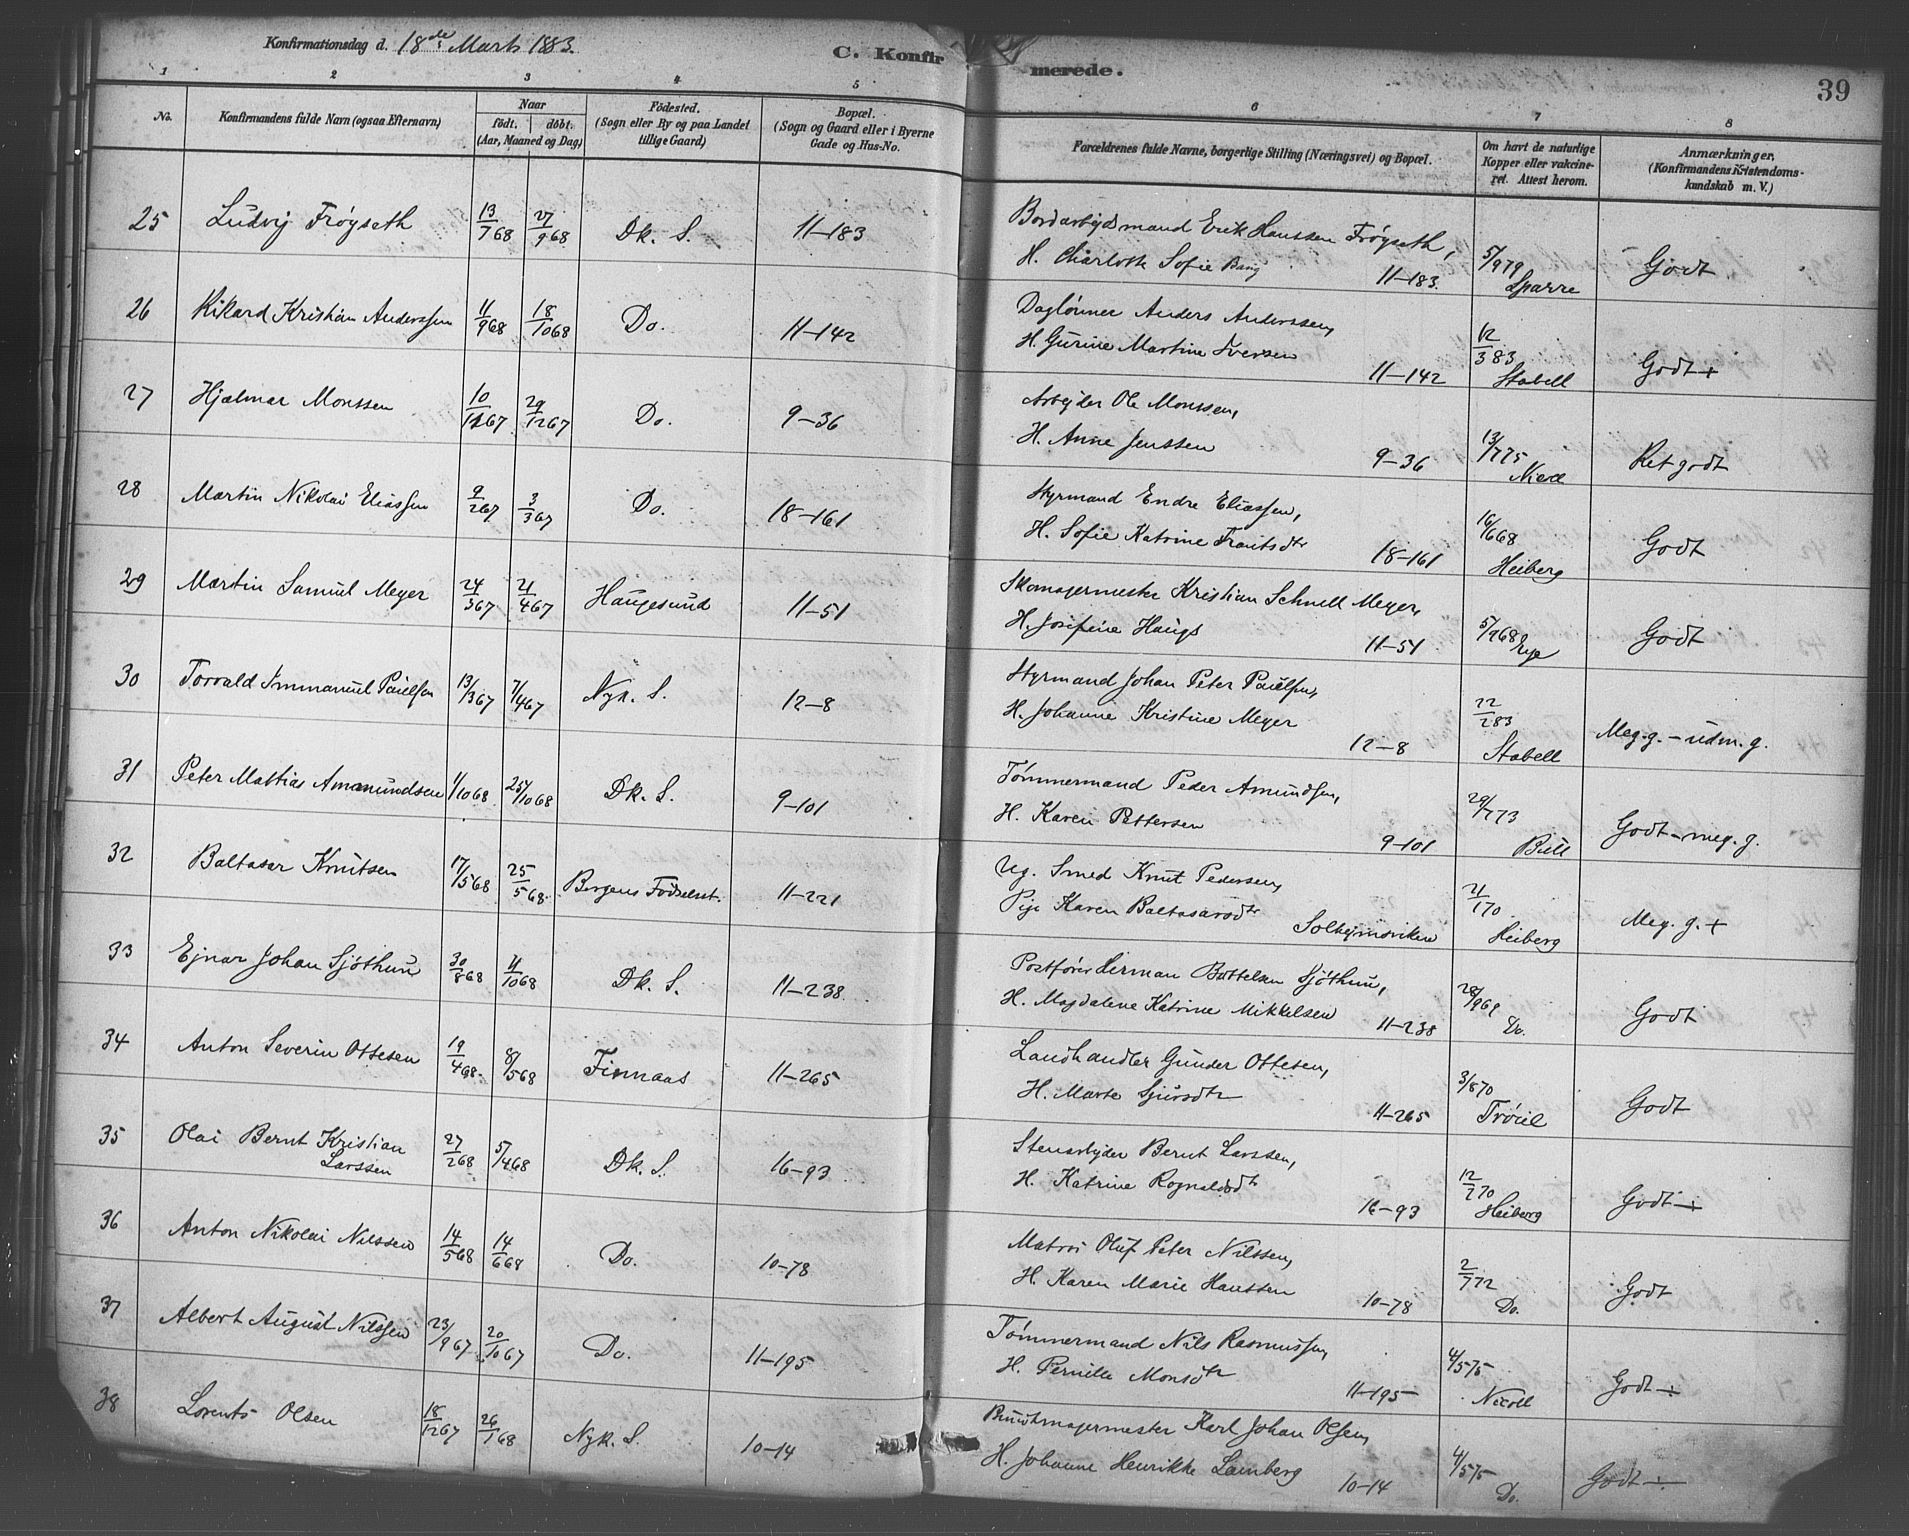 Konfirmationsdag d. 18de Marts 1883.
C. Konfirmerede.
39
1 2 3 4 5 6 7 8
No. Konfirmandens fulde Navn (ogsaa Efternavn) Naar født. døbt. (Aar, Maaned og Dag) Fødested. (Sogn eller By og paa Landet tillige Gaard) Bopæl. (Sogn og Gaard eller i Byerne Gade og Hus-No. Forældrenes fulde Navne, borgerlige Stilling (Næringsvei) og Bopæl. Om havt de naturlige Kopper eller vaccineret. Attest herom. Anmærkninger. (Konfirmandens Kristendomskundskab m. V.)
25 Ludvig Frøyseth 13/768 27/968 Dk. S. 11-183 Bordarbejdsmand Erik Hanssen Frøyseth, 5/979 Godt
H. Charlotte Sofie Bang 11-183. Sparre
26 Rikard Kristian Anderssen 11/968 18/1068 Do. 11-142 Daglønner Anders Anderssen, 12/383 Godt +
H. Gurine Martine Iversen 11-142 Stabell
27 Hjalmar Monssen 10/1267 29/1267 Do. 9-36 Arbejder Ole Monssen, 13/775 Ret godt
H. Anne Jenssen 9-36
28 Martin Nikolai Eliassen 9/267 3/367 Do. 18-161 Styrmand Endre Eliassen, 16/668 Godt
H. Sofie Katrine Frantsdtr 18-161 Heiberg
29 Martin Samuel Meyer 24/367 21/467 Haugesund 11-51 Skomagermester Kristian Schnell Meyer, 5/968 Godt
H. Josefine Haugs 11-51 Rye
30 Torvald Immanuel Paulsen 13/367 7/467 Nyk. S. 12-8 Styrmand Johan Peter Paulsen, 22/283 Meg. g. - udm. g.
H. Johanne Kristine Meyer 12-8 Stabell
31 Peter Mattias Amamundsen 1/1068 25/1068 Dk. S. 9-101 Tømmermand Peder Amundsen, 29/773 Godt - meg. g.
H. Karen Pettersen 9-101 Bull
32 Baltasar Knutsen 17/568 25/568 Bergens Fødselsst. 11-221 Ug. Smed Knut Pedersen, 21/170 Meg. g. +
Pige Karen Baltasarsdtr Solhejmsviken Heiberg
33 Ejnar Johan Sjøthun 30/868 11/1068 Dk. S. 11-238 Postfører Herman Bottelsen Sjøthun, 28/969 Godt
H. Magdalene Katrine Mikkelsen 11-238 Do.
34 Anton Severin Ottesen 19/468 8/568 Finnaas 11-265 Landhandler Gunder Ottesen, 3/870 Godt
H. Marte Sjursdtr 11-265 Trøiel
35 Olai Bernt Kristian 27/268 5/468 Dk. S. 16-93 Stenarbejder Bernt Larssen, 12/270 Godt ÷
Larssen H. Katrine Rognaldsdtr 16-93 Heiberg
36 Anton Nikolai Nilssen 14/568 14/668 Do. 10-78 Matros Oluf Peter Nilssen, 2/772 Godt
H. Karen Marie Hanssen 10-78 Do.
37 Albert August Nilssen 23/967 20/1067 Do. 11-195 Tømmermand Nils Rasmussen, 4/575 Godt ÷
H. Pernille Monsdtr 11-195 Nicoll
38 Lorents Olsen 18/1267 26/168 Nyk. S. 10-14 Buntmagermester Karl Johan Olsen, 4/575 Godt ÷
H. Johanne Henrikke Lamberg 10-14 Do.